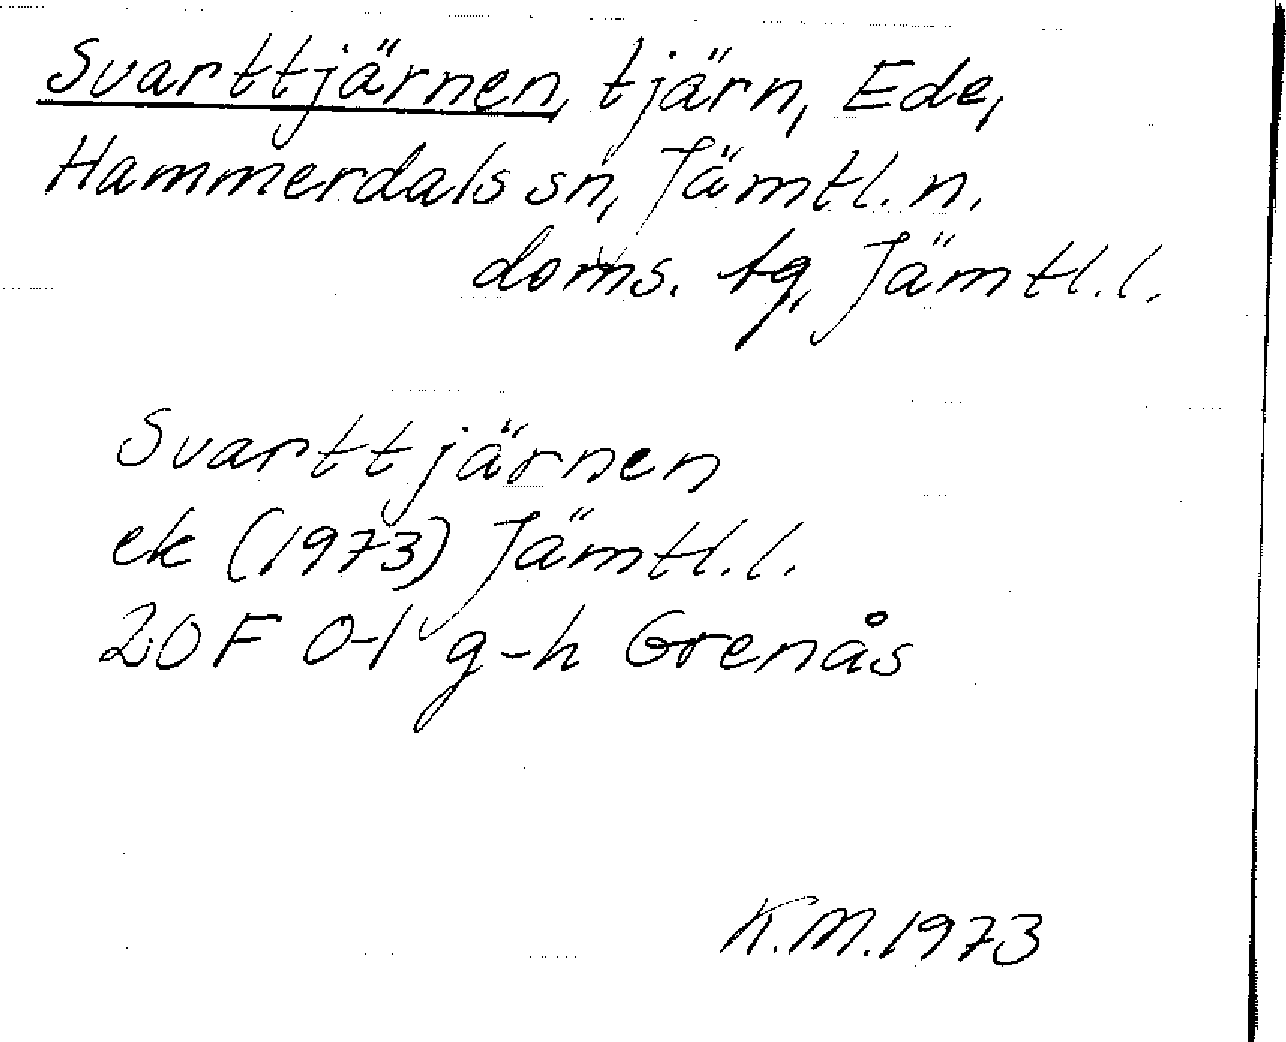 Svarttjärnen, tjärn, Ede,
Hammerdals sn, Jämtl. n.
doms. tg, Jämtl. l.
Svarttjärnen
ek (1973) Jämtl. l.
20F 0-1 g-h Grenås
K.M. 1973